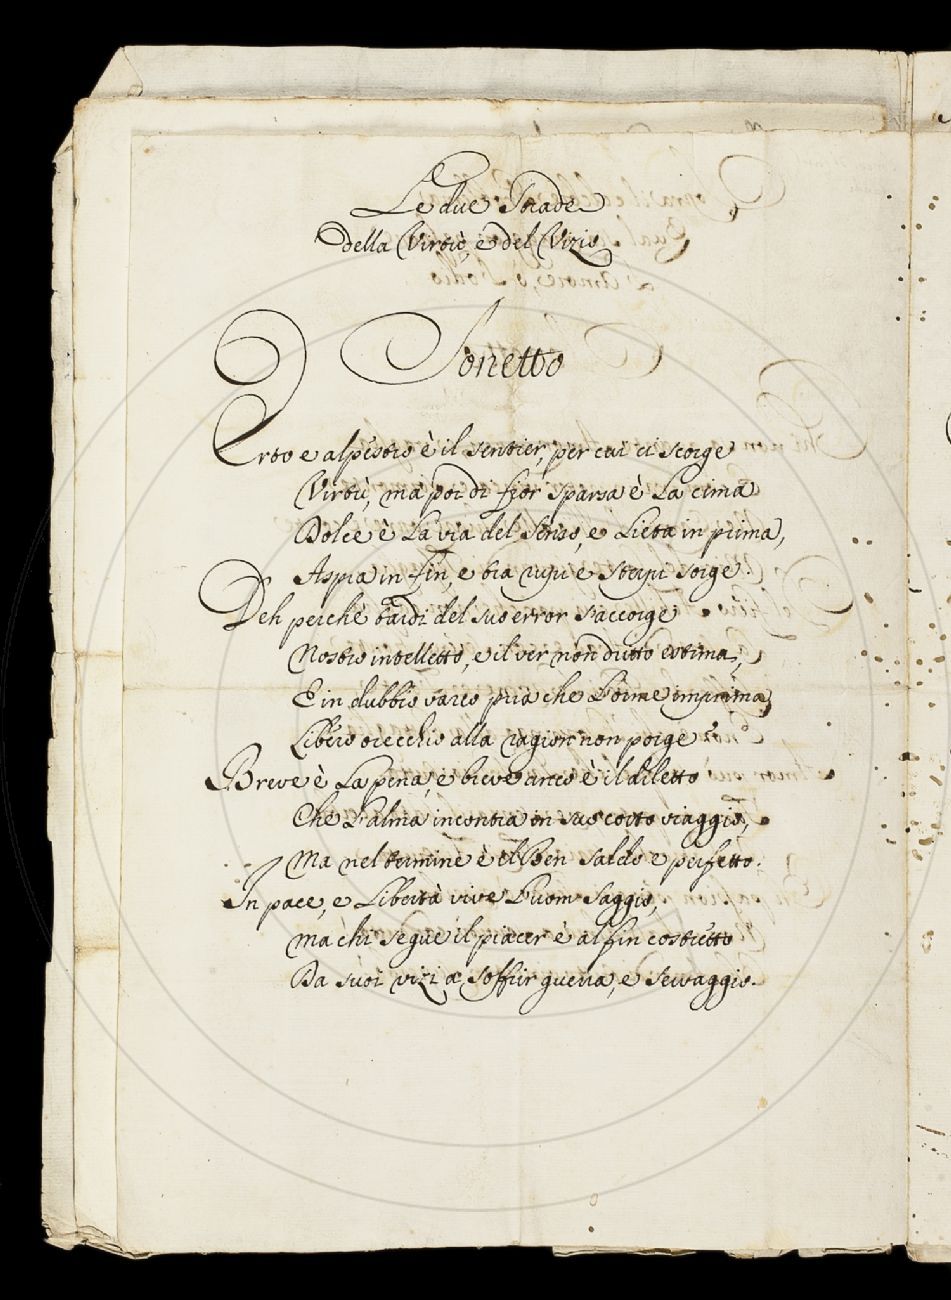 Le due Strade
della Virtù, e del Vizio
Sonetto
Erto e alpestro è il sentier, per cui ci scorge
Virtù, ma poi di fior sparsa è la cima
Dolce è la via del senso, e lieta in prima,
Aspra in fin, e tra rupi e sterpi sorge.
Deh perchè tardi del suo error s'accorge
Nostro intelletto, e il ver non dritto estima,
E in dubbio varco pria che l'orme imprima,
Libero orecchio alla ragion non porge
Breve è la pena, e breve anco è il diletto
Che l'alma incontra in suo corto viaggio,
Ma nel termine è il Ben saldo e perfetto.
In pace, e Libertà vive l'uom saggio,
ma chi segue il piacer è alfin costretto
Da suoi vizi a soffrir guerra, e servaggio.